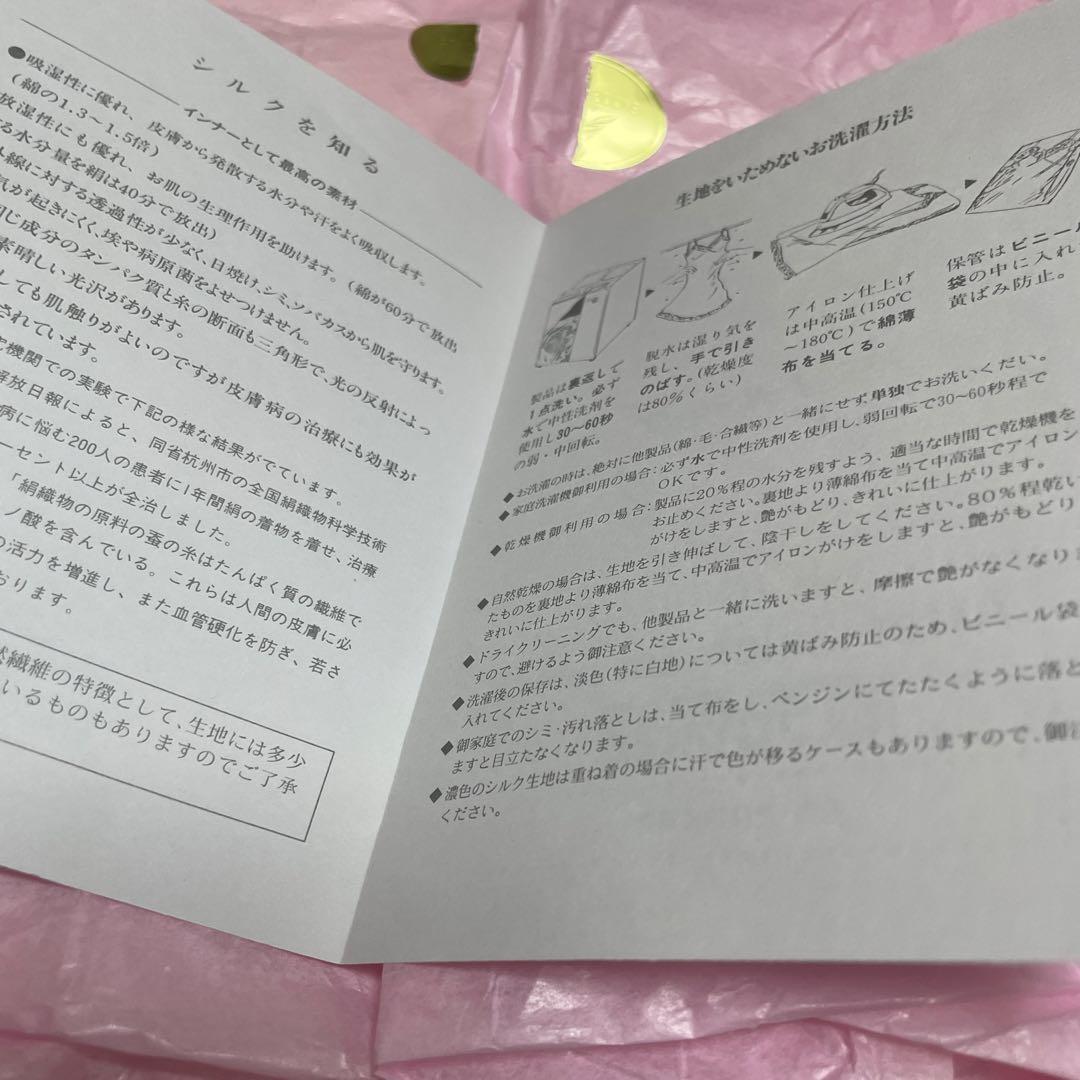 シルクを知る
インナーとして最高の素材
●吸湿性に優れ、皮膚から発散する水分や汗をよく吸収します。
(綿の1.3〜1.5倍)
放湿性にも優れ、お肌の生理作用を助けます。(綿が60分で放出
る水分量を絹は40分で放出)
線に対する透過性が少なく、日焼け、シミ、ソバカスから肌を守ります。
気が起きにくく、埃や病原菌をよせつけません。
じ成分のタンパク質と糸の断面も三角形で、光の反射によっ
素晴しい光沢があります。
しても肌触りがよいのですが皮膚病の治療にも効果が
されています。
機関での実験で下記の様な結果がでています。
解放日報によると、同省杭州市の全国絹織物科学技術
病に悩む200人の患者に1年間絹の着物を着せ、治療
ーセント以上が全治しました。
「絹織物の原料の蚕の糸はたんぱく質の繊維で
ノ酸を含んでいる。これらは人間の皮膚に必
の活力を増進し、また血管硬化を防ぎ、若さ
おります。
然繊維の特徴として、生地には多少
いるものもありますのでご了承
生地をいためないお洗濯方法
製品は裏返して
1点洗い。必ず
水で中性洗剤を
使用し30〜60秒
の弱・中回転。
脱水は湿り気を
残し、手で引き
のばす。(乾燥度
は80%くらい)
アイロン仕上げ
は中高温(150℃
〜180℃)で綿薄
布を当てる。
保管はビニール
袋の中に入れ
黄ばみ防止。
◆お洗濯の時は、絶対に他製品(綿・毛・合繊等)と一緒にせず、単独でお洗いください。
◆家庭洗濯機御利用の場合:必ず水で中性洗剤を使用し、弱回転で30〜60秒程で
OKです。
◆乾燥機御利用の場合:製品に20%程の水分を残すよう、適当な時間で乾燥機を
お止めください。裏地より薄綿布を当て中高温でアイロン
がけをしますと、艶がもどり、きれいに仕上がります。
◆自然乾燥の場合は、生地を引き伸ばして、陰干しをしてください。80%程乾い
たものを裏地より薄綿布を当て、中高温でアイロンがけをしますと、艶がもどり
きれいに仕上がります。
◆ドライクリーニングでも、他製品と一緒に洗いますと、摩擦で艶がなくなりま
すので、避けるよう御注意ください。
◆洗濯後の保存は、淡色(特に白地)については黄ばみ防止のため、ビニール袋
入れてください。
◆御家庭でのシミ・汚れ落としは、当て布をし、ベンジンにてたたくように落と
ますと目立たなくなります。
◆濃色のシルク生地は重ね着の場合に汗で色が移るケースもありますので、御注
ください。